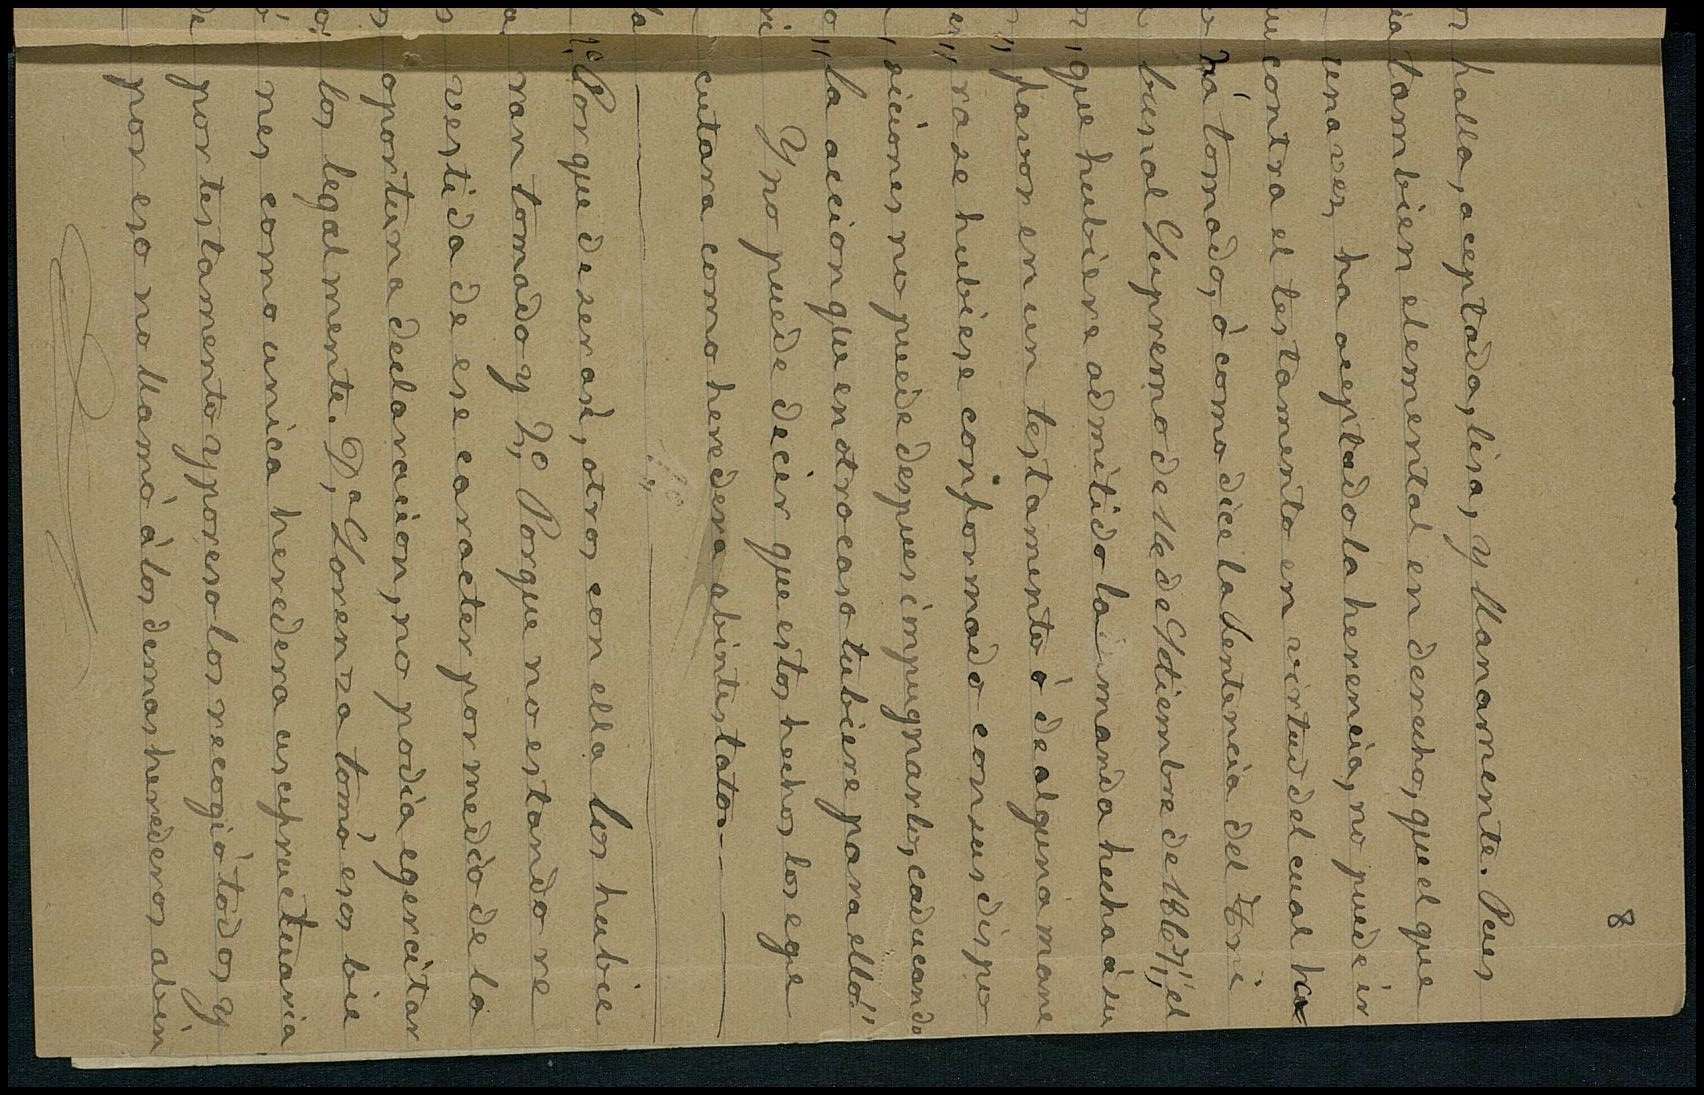 8
halla, aceptada, lisa, y llanamente. Pues
tambien elemental en derecho, que el que
una ves, ha aceptado la herencia, no puede ir
contra el testamento en virtud del cual ha
há tomado, ò como dice la Sentencia del Tri
bunal Supremo de 14 de Setiembre de
que hubiere admitido la manda hecha á su
favor en un testamento ò de alguna mane
ra se hubiese conformado con sus dispo
siciones no puede despues impugnarlo, caducando
la accion que en otro caso tubiere para ello"
Y no puede decir que estos hechos los ege
cutara como heredera abintestato.
1º Porque de ser asi, otros con ella los hubie
ran tomado y 2º Porque no estando re
vestida de ese caracter por medio de la
oportuna declaracion, no podia egercitar
los legalmente. Dª Lorenza tomó esos bie
nes como unica heredera usufructuaria
por testamento y por eso los recogió todos y
por eso no llamó á los demas herederos abin